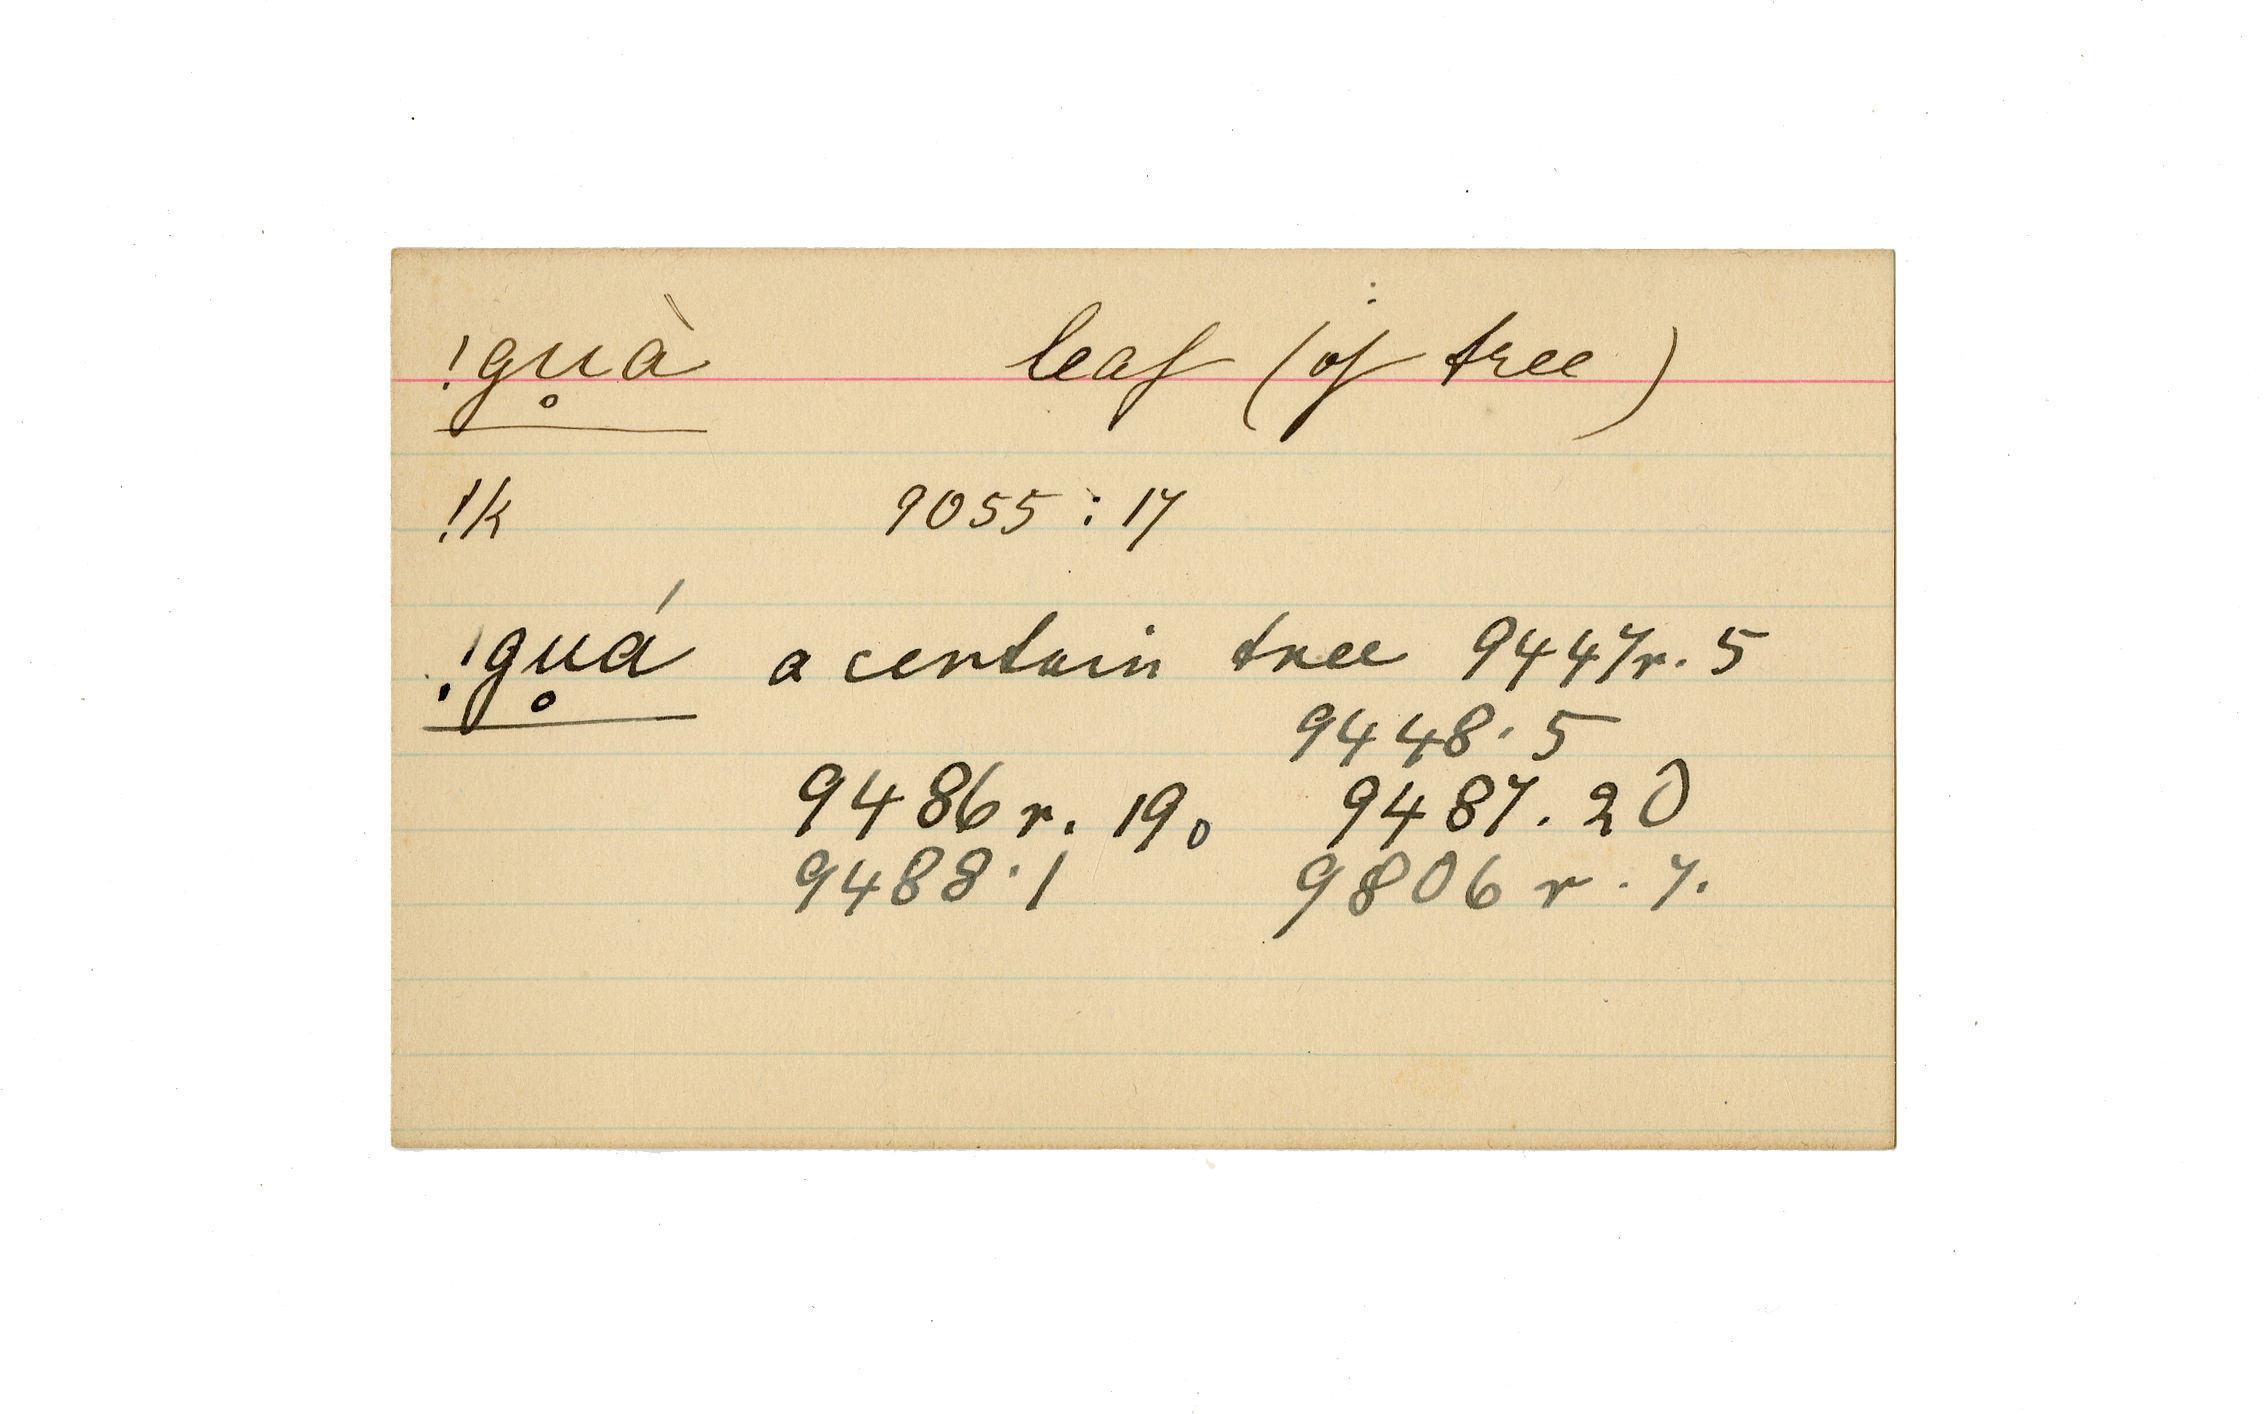 !gu̥à leaf (of tree)
!k 9055 : 17
!gu̥á a certain tree 9447r. 5
9448. 5
9486r. 19. 9487. 20
9488. 1 9806r. 7.